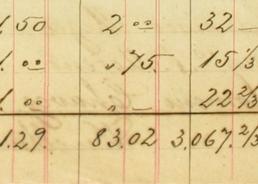 1.50 2 00 32 —
1.00 " 75. 15 1/3
1.00 " — 22 2/3
1.29. 83.02 3,067.2/3